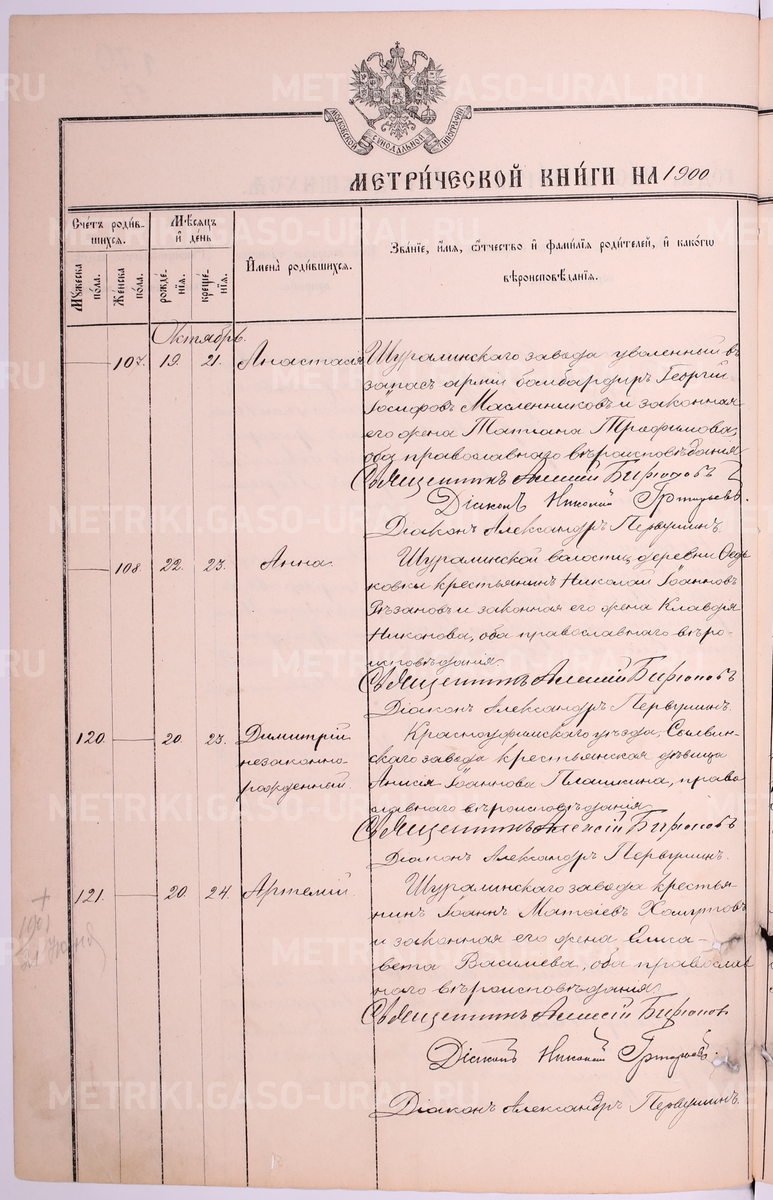 МОСКОВСКОЙ СѴНОДАЛЬНОЙ ТИПОГРАФІИ
МЕТРИ́ЧЕСКОЙ КНИ́ГИ НА 1900
Счетъ роди́вшихся.
Мѣсяцъ и день
Имена̀ роди́вшихся.
Зва́ніе, и́мя, о́тчество и фами́лія роди́телей, и како́гѡ
вѣроисповѣ́данія.
Му́жеска по́ла.
Же́нска по́ла.
рожде́нія.
креще́нія.
Октябрь.
107. 19. 21. Анастасія Шуралинскаго завода уволенный въ
запасъ арміи бомбардиръ Георгій
Іосифовъ Масленниковъ и законная
его жена Татіана Трофимова,
оба православнаго вѣроисповѣданія
Священникъ Алексій Бирюковъ
Діаконъ Николай Григорьевъ.
Діаконъ Александръ Первушинъ.
108. 22. 23. Анна Шуралинской волости, деревни Осиновки
крестьянинъ Николай Іоанновъ
Рѣзановъ и законная его жена Клавдія
Никонова, оба православнаго вѣро-
исповѣданія.
Священникъ Алексій Бирюковъ
Діаконъ Александръ Первушинъ.
120. 20. 23. Димитрій Красноуфимскаго уѣзда, Сылвин-
незаконно- скаго завода крестьянская дѣвица
рожденный. Анисія Іоаннова Плашкина, право-
славнаго вѣроисповѣданія
Священникъ Алексій Бирюковъ
Діаконъ Александръ Первушинъ.
121. 20. 24. Артемій. Шуралинскаго завода крестья-
нинъ Іоаннъ Матѳіевъ Хомутовъ
и законная его жена Елиса-
вета Василіева, оба православ
наго вѣроисповѣданія.
+
1901
21 Июня
Священникъ Алексій Бирюковъ
Діаконъ Николай Григорьевъ.
Діаконъ Александръ Первушинъ.
METRIKI.GASO-URAL.RU